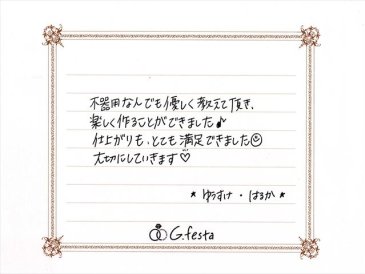 不器用なんでも優しく教えて頂き、
楽しく作ることができました♪
仕上がりも、とても満足できました☺
大切にしていきます♡
* ゆうすけ・はるか *
G.festa